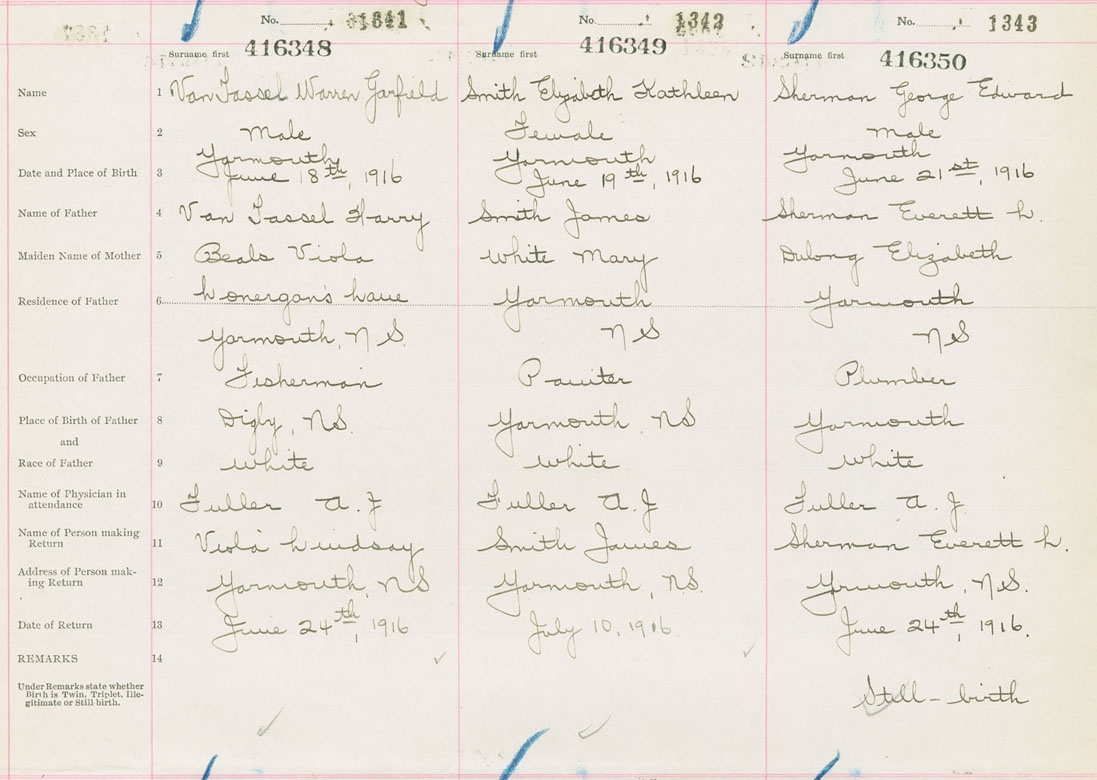 No. 1341 No. 1342 No. 1343
Surname first 416348 Surname first 416349 Surname first 416350
Name 1 Van Tassel Warren Garfield Smith Elizabeth Kathleen Sherman George Edward
Sex 2 Male Female Male
Yarmouth Yarmouth Yarmouth
Date and Place of Birth 3 June 18th, 1916 June 19th, 1916 June 21st, 1916
Name of Father 4 Van Tassel Harry Smith James Sherman Everett L.
Maiden Name of Mother 5 Beals Viola White Mary Dulong Elizabeth
Residence of Father 6 Lonergan's Lane Yarmouth Yarmouth
Yarmouth, NS. NS NS
Occupation of Father 7 Fisherman Painter Plumber
Place of Birth of Father 8 Digby, NS. Yarmouth, NS Yarmouth
and
Race of Father 9 White White White
Name of Physician in
attendance 10 Fuller A. J Fuller A. J Fuller A. J.
Name of Person making
Return 11 Viola Lindsay Smith James Sherman Everett L.
Address of Person mak-
ing Return 12 Yarmouth, NS Yarmouth, NS. Yrmouth, N.S.
Date of Return 13 June 24th, 1916 July 10, 1916. June 24th, 1916.
REMARKS 14
Under Remarks state whether
Birth is Twin, Triplet, Ille-
gitimate or Still birth.
Still-birth